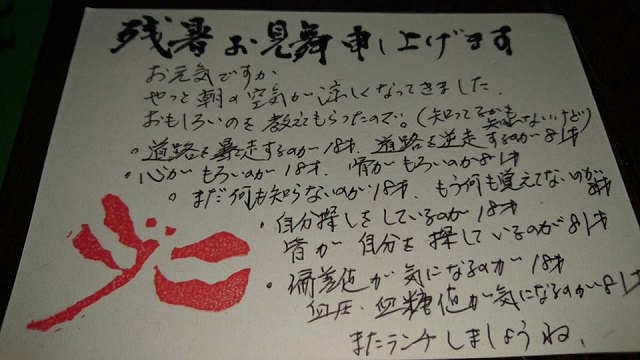 残暑お見舞申し上げます
お元気ですか
やっと朝の空気が涼しくなってきました.
おもしろいのを教えてもらったので。(知ってるかも知れないけど)
・道路を暴走するのが18才、道路を逆走するのが81才
・心がもろいのが18才、骨がもろいのが81才
・まだ何も知らないのが18才、もう何も覚えてないのが81才
・自分探しをしているのが18才
皆が自分を探しているのが81才
・偏差値が気になるのが18才
血圧・血糖値が気になるのが81才
またランチしましょうね、